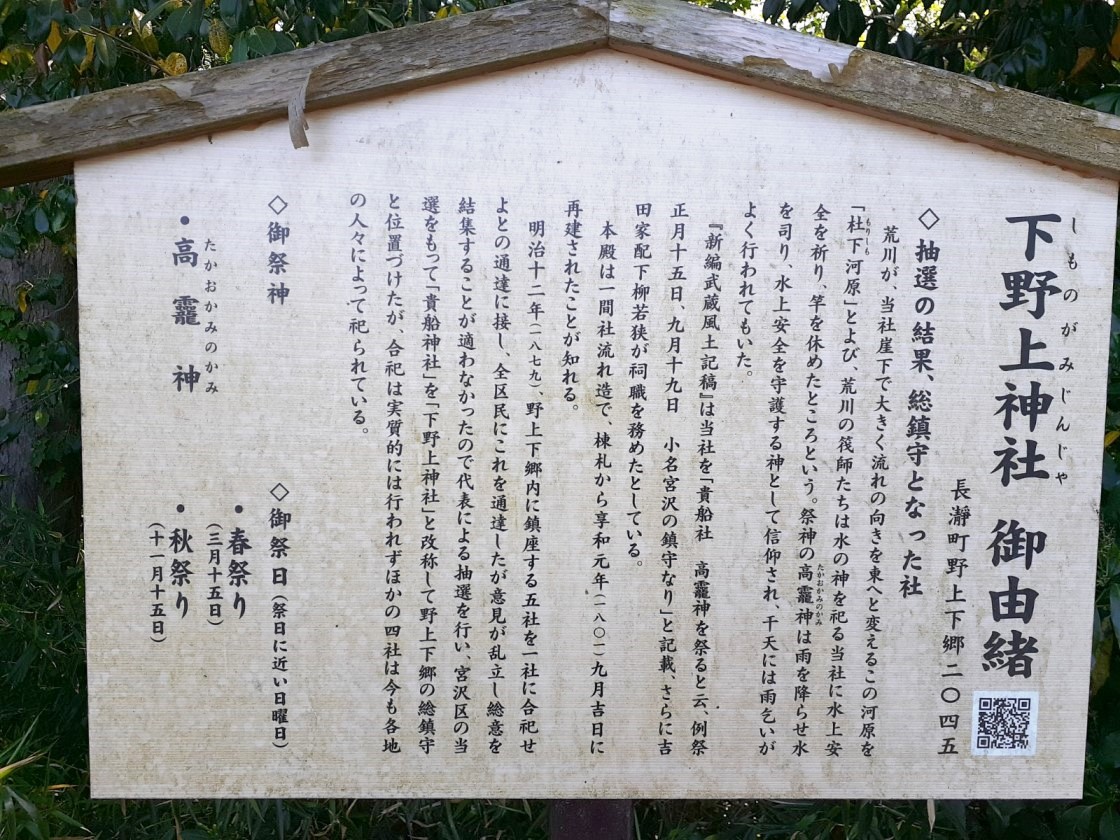 しものがみじんじゃ
下野上神社　御由緒
長瀞町野上下郷二〇四五
◇抽選の結果、総鎮守となった社
荒川が、当社崖下で大きく流れの向きを東へと変えるこの河原を
もりしも
「杜下河原」とよび、荒川の筏師たちは水の神を祀る当社に水上安
全を祈り、竿を休めたところという。祭神の高龗神は雨を降らせ水
たかおかみのかみ
を司り、水上安全を守護する神として信仰され、干天には雨乞いが
よく行われてもいた。
『新編武蔵風土記稿』は当社を「貴船社　高龗神を祭ると云、例祭
正月十五日、九月十九日　小名宮沢の鎮守なり」と記載、さらに吉
田家配下柳若狭が祠職を務めたとしている。
本殿は一間社流れ造で、棟札から享和元年（一八〇一）九月吉日に
再建されたことが知れる。
明治十二年（一八七九）、野上下郷内に鎮座する五社を一社に合祀せ
よとの通達に接し、全区民にこれを通達したが意見が乱立し総意を
結集することが適わなかったので代表による抽選を行い、宮沢区の当
選をもって「貴船神社」を「下野上神社」と改称して野上下郷の総鎮守
と位置づけたが、合祀は実質的には行われずほかの四社は今も各地
の人々によって祀られている。
◇御祭神
たかおかみのかみ
・高龗神
◇御祭日（祭日に近い日曜日）
・春祭り
（三月十五日）
・秋祭り
（十一月十五日）